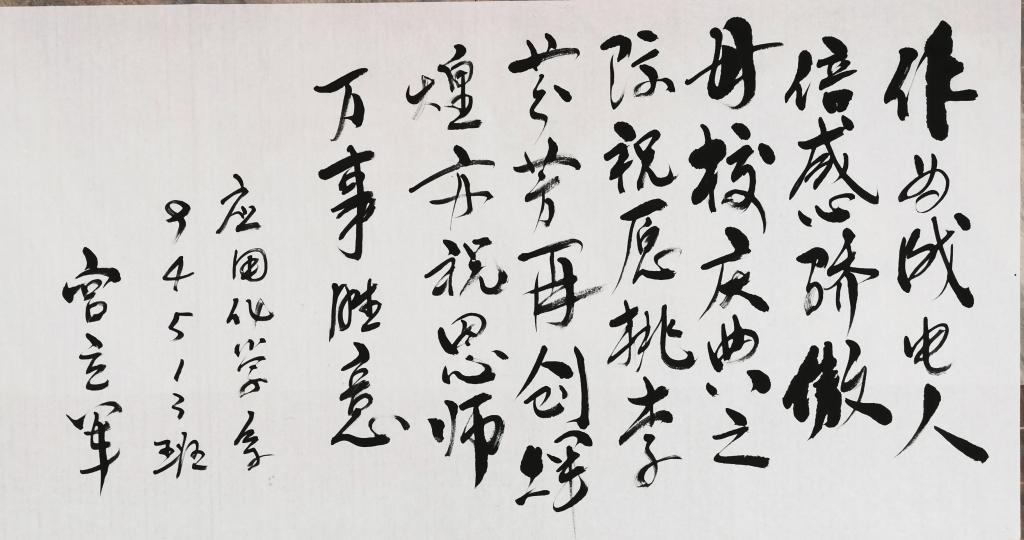 作为成电人
倍感骄傲
母校庆典之
际祝愿桃李
芬芳再创辉
煌亦祝恩师
万事胜意
应用化学系
94513班
宫立军